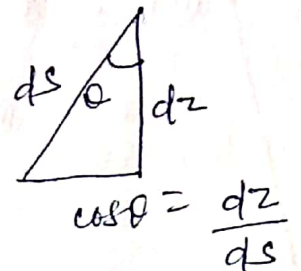 ds
θ
dz
cosθ = dz/ds